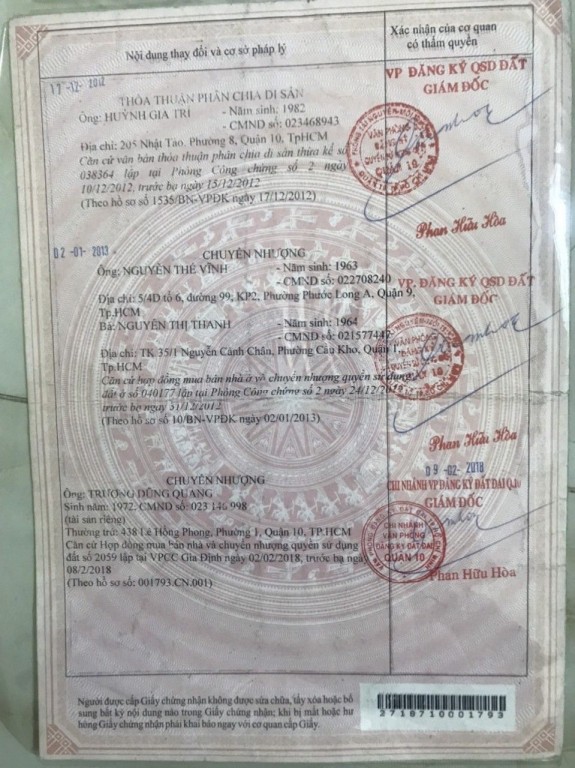 Nội dung thay đổi và cơ sở pháp lý
Xác nhận của cơ quan
có thẩm quyền
17-12-2012
THỎA THUẬN PHÂN CHIA DI SẢN
Ông: HUỲNH GIA TRÍ - Năm sinh: 1982
- CMND số: 023468943
Địa chỉ: 205 Nhật Tảo, Phường 8, Quận 10, TpHCM
Căn cứ văn bản thỏa thuận phân chia di sản thừa kế số
038364 lập tại Phòng Công chứng số 2 ngày
10/12/2012, trước bạ ngày 13/12/2012
(Theo hồ sơ số 1535/BN-VPĐK ngày 17/12/2012)
VP ĐĂNG KÝ QSD ĐẤT
GIÁM ĐỐC
VĂN PHÒNG
ĐĂNG KÝ
QUYỀN SỬ DỤNG ĐẤT
QUẬN 10
Phan Hữu Hòa
02-01-2013
CHUYỂN NHƯỢNG
Ông: NGUYỄN THẾ VĨNH - Năm sinh: 1963
- CMND số: 022708240
Địa chỉ: 5/4D tổ 6, đường 99, KP2, Phường Phước Long A, Quận 9,
Tp.HCM
Bà: NGUYỄN THỊ THANH - Năm sinh: 1964
- CMND số: 021577447
Địa chỉ: TK 35/1 Nguyễn Cảnh Chân, Phường Cầu Kho, Quận 1,
Tp.HCM
Căn cứ hợp đồng mua bán nhà ở và chuyển nhượng quyền sử dụng
đất ở số 040177 lập tại Phòng Công chứng số 2 ngày 24/12/2012
trước bạ ngày 31/12/2012
(Theo hồ sơ số 10/BN-VPĐK ngày 02/01/2013)
VP. ĐĂNG KÝ QSD ĐẤT
GIÁM ĐỐC
Phan Hữu Hòa
CHUYỂN NHƯỢNG
Ông: TRƯƠNG DŨNG QUANG
Sinh năm: 1972, CMND số: 023 146 998
(tài sản riêng)
Thường trú: 438 Lê Hồng Phong, Phường 1, Quận 10, TP.HCM
Căn cứ Hợp đồng mua bán nhà và chuyển nhượng quyền sử dụng
đất số 2059 lập tại VPCC Gia Định ngày 02/02/2018, trước bạ ngày
08/2/2018
(Theo hồ sơ số: 001793.CN.001)
09-02-2018
CHI NHÁNH VP ĐĂNG KÝ ĐẤT ĐAI Q.10
GIÁM ĐỐC
CHI NHÁNH
VĂN PHÒNG
ĐĂNG KÝ ĐẤT ĐAI
QUẬN 10
Phan Hữu Hòa
Người được cấp Giấy chứng nhận không được sửa chữa, tẩy xóa hoặc bổ
sung bất kỳ nội dung nào trong Giấy chứng nhận; khi bị mất hoặc hư
hỏng Giấy chứng nhận phải khai báo ngay với cơ quan cấp Giấy.
2718710001793